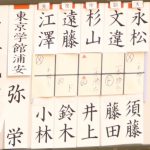 永松
文違
杉山
遠藤
江澤
東京学館浦安
須藤
藤田
井上
鈴木
小林
弥栄